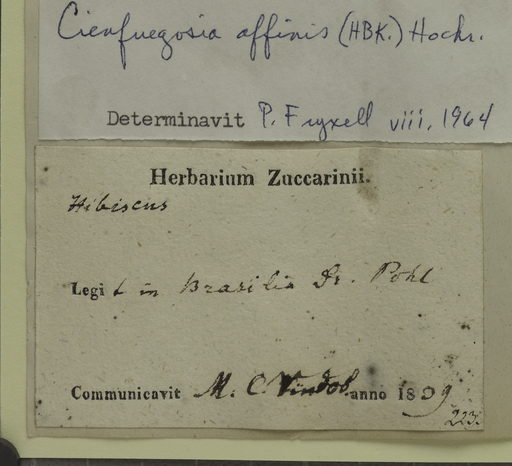 Cienfuegosia affinis (HBK.) Hochr.
Determinavit P. Fryxell viii, 1964
Herbarium Zuccarinii.
Hibiscus
Legit in Brasilia Dr. Pohl
Communicavit M. C. Vindob. anno 1839
223.